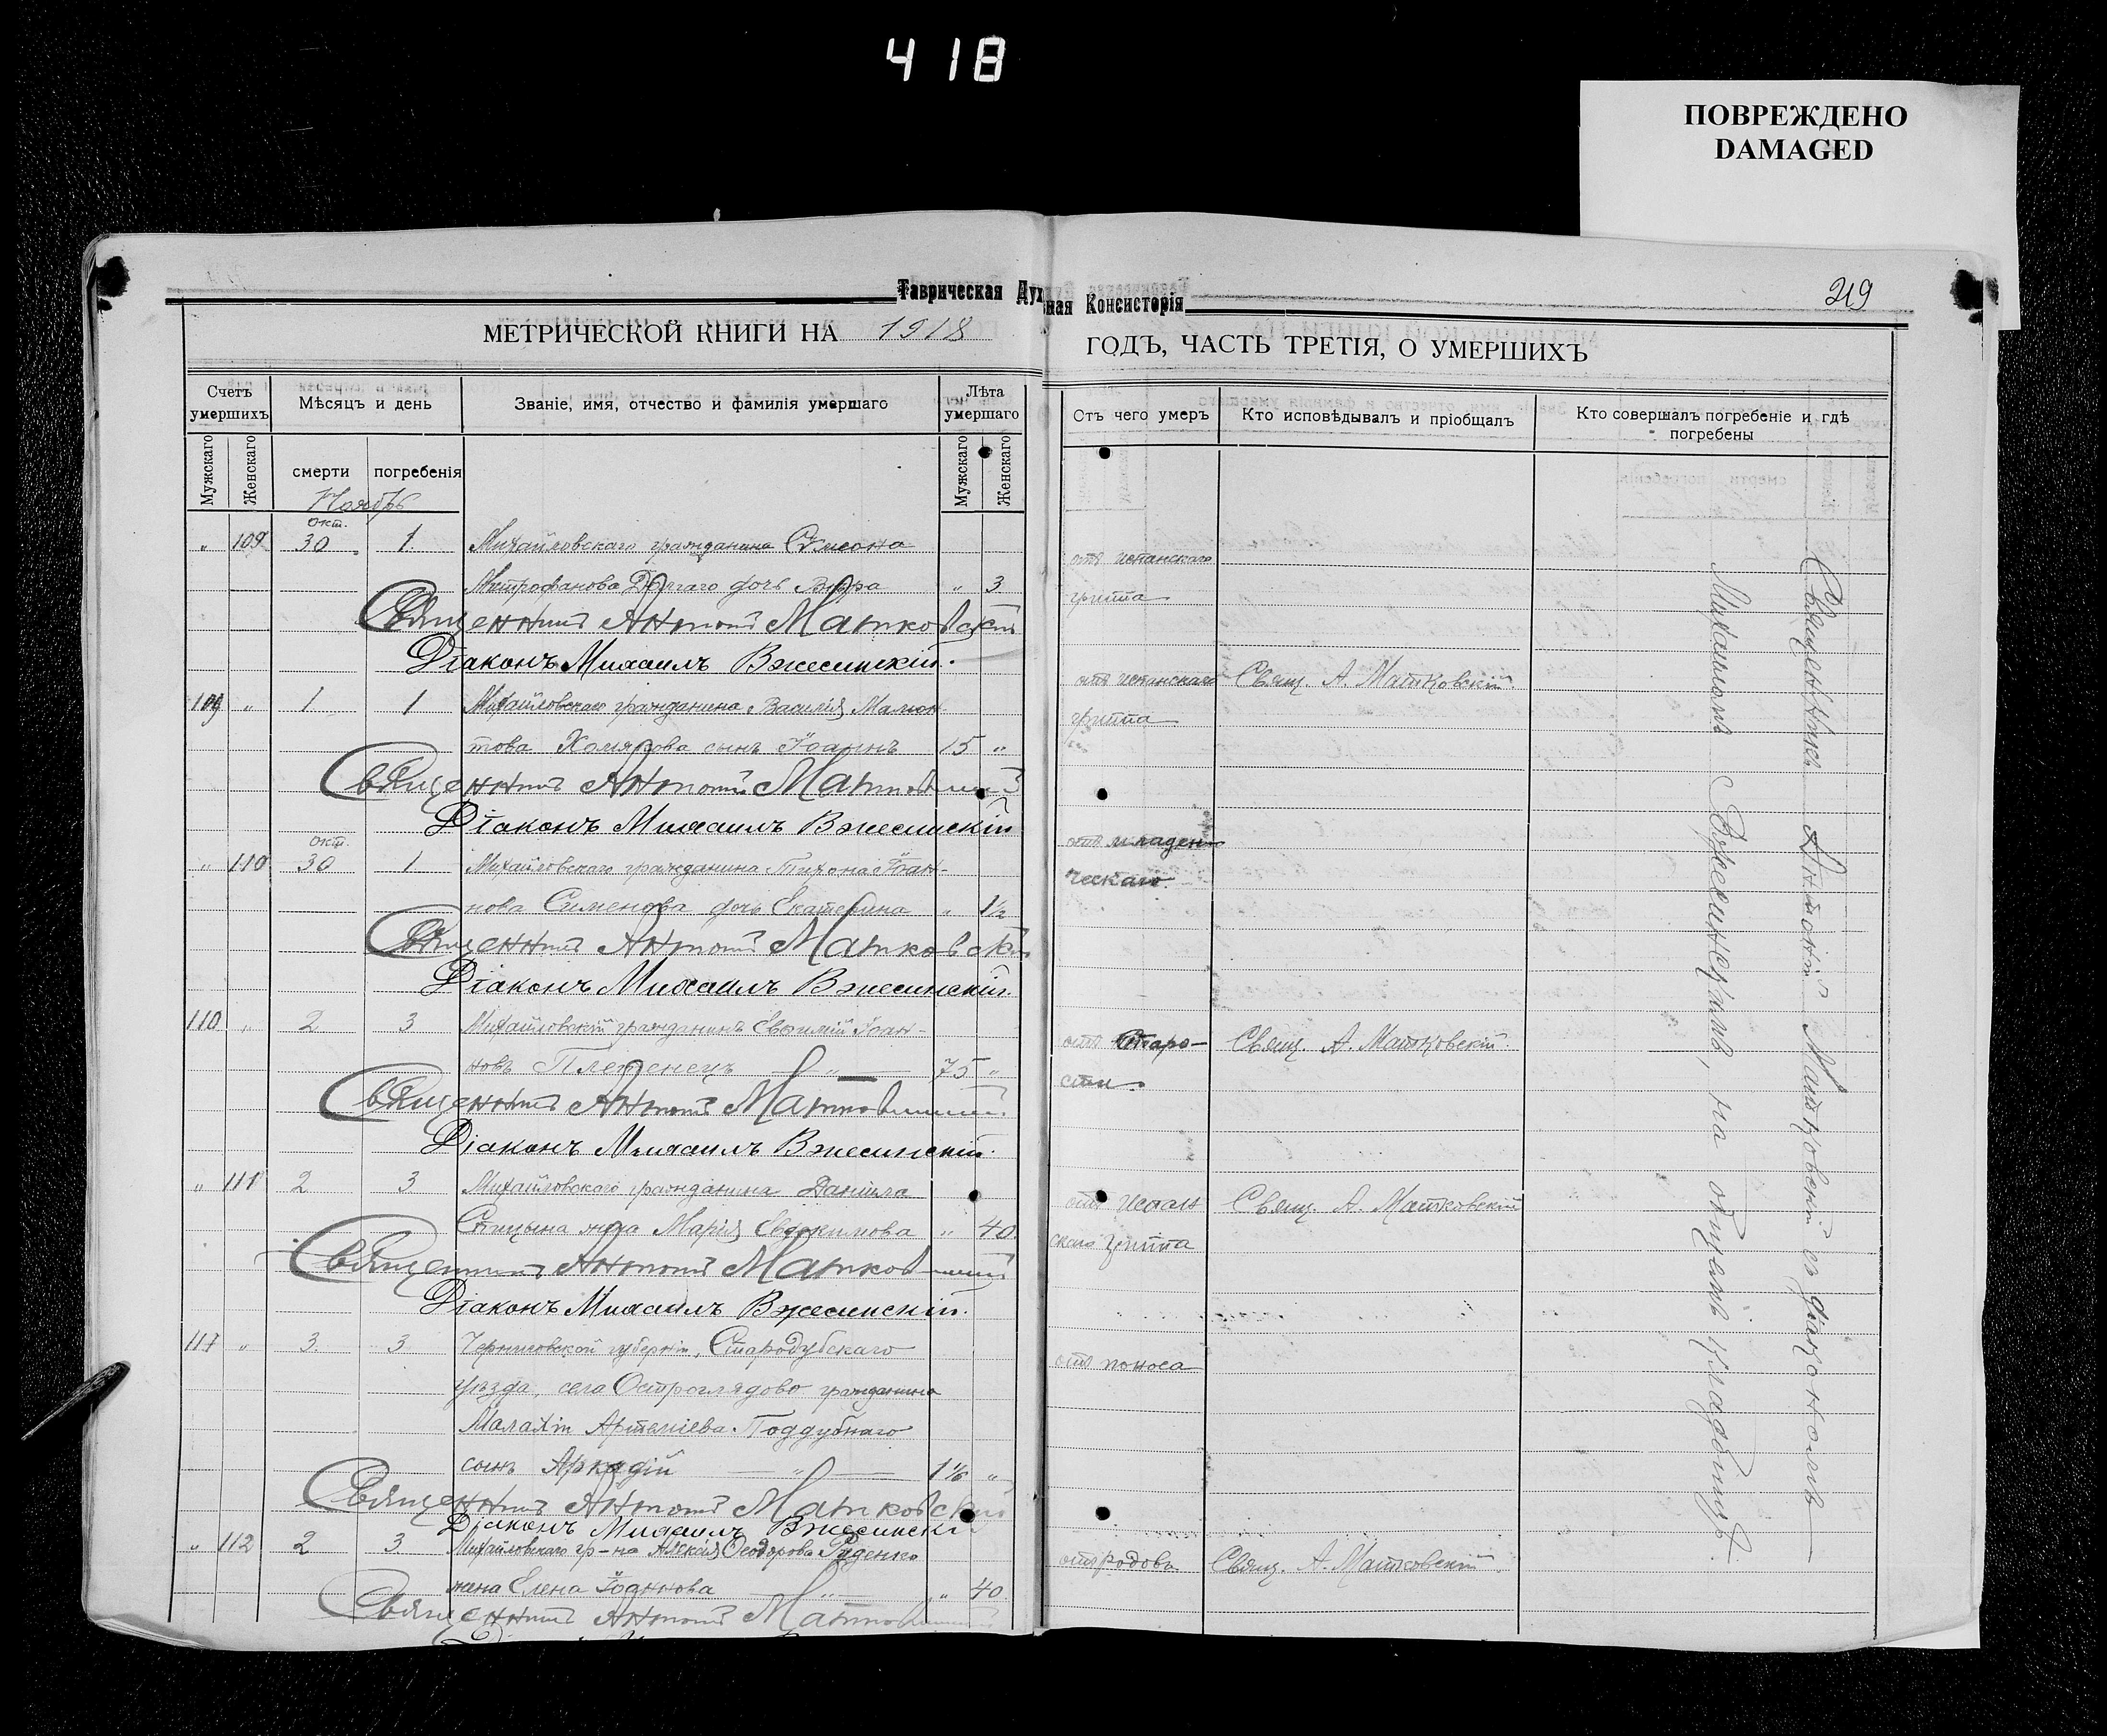 418
ПОВРЕЖДЕНО
DAMAGED
219
Таврическая Духовная Консисторія
МЕТРИЧЕСКОЙ КНИГИ НА 1918 ГОДЪ, ЧАСТЬ ТРЕТІЯ, О УМЕРШИХЪ
Счетъ умершихъ
Мѣсяцъ и день
Званіе, имя, отчество и фамилія умершаго
Лѣта умершаго
Отъ чего умеръ
Кто исповѣдывалъ и пріобщалъ
Кто совершалъ погребеніе и гдѣ погребены
Мужскаго
Женскаго
смерти
погребенія
Мужскаго
Женскаго
Ноябрь
окт.
" 109 30 1 Михайловскаго гражданина Сѵмеона
отъ испанскаго
Митрофанова Долгаго дочь Вѣра " 3
гриппа
Священникъ Антоній Матковскій
Діаконъ Михаилъ Вжесинскій.
109 " 1 1 Михайловскаго гражданина Василія
отъ испанскаго Свящ. А. Матковскій.
това Хомякова сынъ Іоаннъ 15 "
гриппа
Священникъ Антоній Матковскій
Діаконъ Михаилъ Вжесинскій
окт.
" 110 30 1 Михайловскаго гражданина Тихона Іоан-
отъ младен
ческаго.
нова Сименова дочь Екатерина " 1½
Священникъ Антоній Матковскій
Діаконъ Михаилъ Вжесинскій.
110 " 2 3 Михайловскій гражданинъ Евѳимій Іоан-
отъ старо- Свящ. А. Матковскій.
новъ " 75 "
сти.
Священникъ Антоній Матковскій
Діаконъ Михаилъ Вжесинскій.
" 111 2 3 Михайловскаго гражданина Даніила
отъ испан Свящ. А. Матковскій
жена Марія Евдокимова " 40
скаго гриппа
Священникъ Антоній Матковскій
Діаконъ Михаилъ Вжесинскій.
117 " 3 3 Черниговской губерніи, Стародубскаго
отъ поноса
уѣзда, села Остроглядово гражданина
Малахіи Артеміева Поддубнаго
сынъ Аркадій "
Священникъ Антоній Матковскій
Діаконъ Михаилъ Вжесинскій
" 112 2 3 Михайловскаго гр-на Алексія Ѳеодорова Руденко
отъ родовъ Свящ. А. Матковскій.
жена Елена Іоаннова " " 40
Священникъ Антоній Матковскій
Священникъ Антоній Матковскій съ діакономъ
Михаиломъ Вжесинскимъ, на общемъ кладбищѣ.